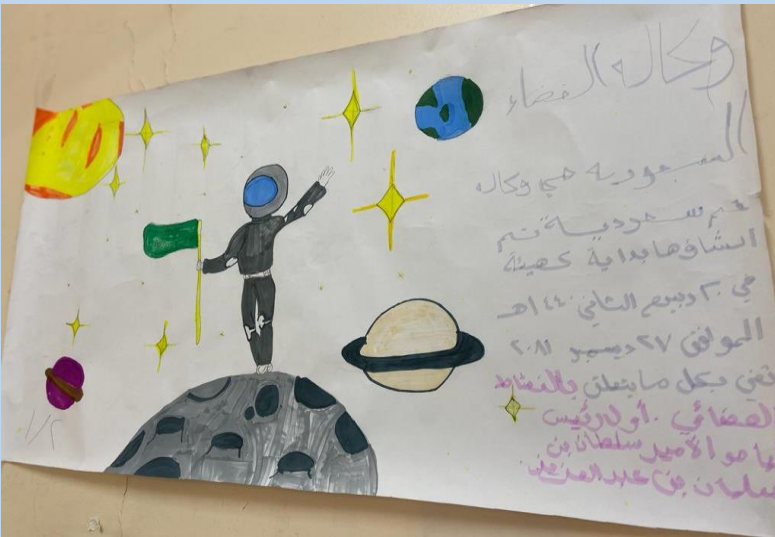 وكالة الفضاء
السعودية هي وكاله
سعودية تم
انشاؤها بداية كهيئة
في ٢٠ ربيع الثاني ١٤٤٠هـ
الموافق ٢٧ ديسمبر ٢٠١٨
تعني بكل ما يتعلق بالنشاط
الفضائي. أول رئيس
لها هو الأمير سلطان بن
سلمان بن عبدالعزيز
١/٢